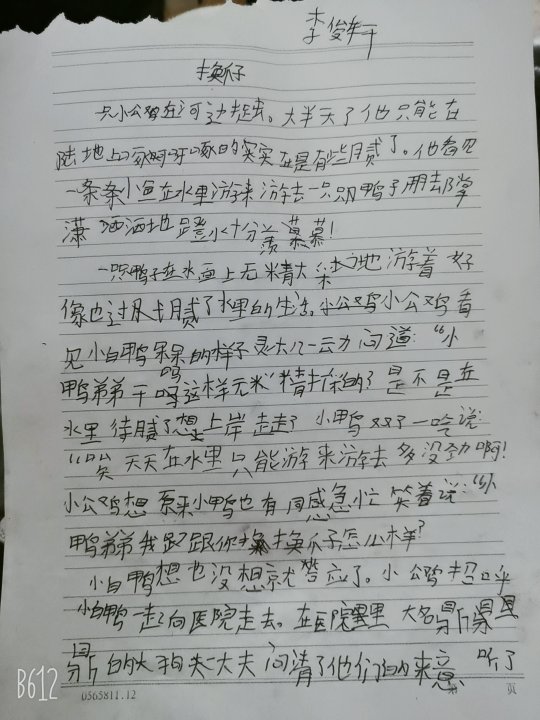 李俊轩
换爪子
一只小公鸡在河边走。大半天了他只能在
陆地上啄啊啄的实实在是有些腻了。他看见
一条条小鱼在水里游来游去一只只鸭子用去掌
潇洒洒地蹬水十分羡慕!
一只鸭子在水面上无精大采地游着好
像也过腻了水里的生活。小公鸡看
见小白鸭呆呆的样子灵机一动问道:“小
鸭弟弟干吗这样无精打采的?是不是在
水里待腻了想上岸走走?小鸭叹了一口气说:
“唉天天在水里只能游来游去多没劲啊!
小公鸡想原来小鸭也有同感急忙笑着说:“小
鸭弟弟我跟你换爪子怎么样?
小白鸭想也没想就答应了。小公鸡招呼
小白鸭一起向医院走去。在医院里大名鼎鼎
的大狗大夫问清了他们的来意听了
B612
0565811.12
页